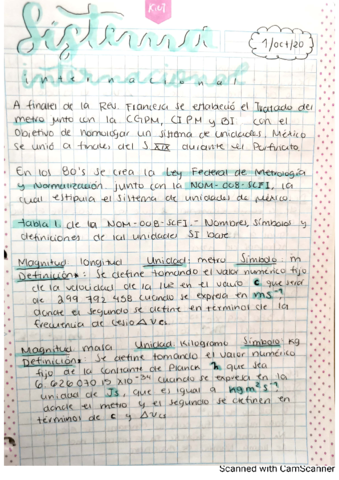 Kivi
Sistema
1/oct/20
internacional
A finales de la Rev. Francesa se estableció el Tratado del
metro junto con la CGPM, CIPM y BI con el
objetivo de homologar un sistema de unidades, México
se unió a finales del S XIX durante el Porfiriato
En los 80's se crea la Ley Federal de Metrología
y Normalización junto con la NOM-008-SCFI, la
cual estipula el sistema de unidades de México.
tabla 1 de la NOM-008-SCFI.- Nombres, Símbolos y
definiciones de las unidades SI base
Magnitud longitud Unidad: metro Símbolo: m
Definición: Se define tomando el valor numerico fijo
de la velocidad de la luz en el vacio c que será
de 299 792 458 cuando se expresa en ms⁻¹
donde el segundo se define en terminos de la
frecuencia de Cesio Δ Vcs
Magnitud: masa Unidad Kilogramo Símbolo Kg
Definición: Se define tomando el valor numérico
fijo de la constante de Planck h que sea
6.626 070 15 X10⁻³⁴ cuando se expresa en la
unidad de Js, que es igual a kg m² s⁻¹
donde el metro y el segundo se definen en
términos de c y Δ Vcs
Scanned with CamScanner